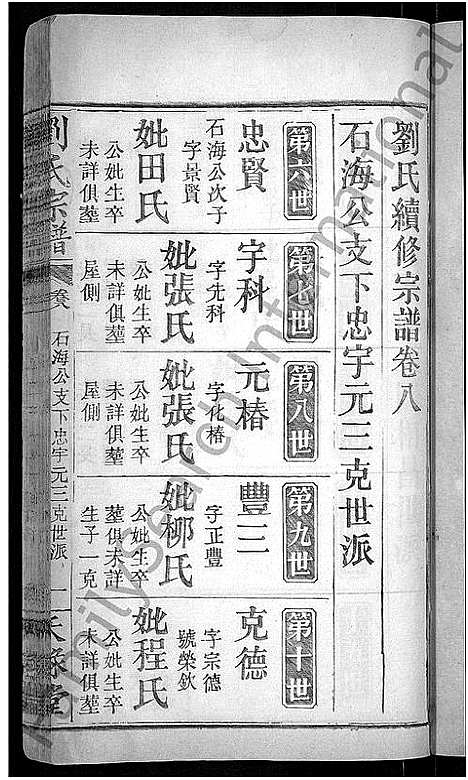 劉氏續修宗譜卷八
石海公支下忠宇元三克世派
第六世
忠賢
石海公次子
字景賢
妣田氏
公妣生卒
未詳俱塟
第七世
宇科
字先科
妣張氏
公妣生卒
未詳俱塟
屋側
第八世
元椿
字化椿
妣張氏
公妣生卒
未詳俱塟
屋側
第九世
豐三
字正豐
妣柳氏
公妣生卒
塟俱未詳
生子一克
第十世
克德
字宗德
號榮欽
妣程氏
公妣生卒
未詳俱塟
劉氏宗譜
卷八
石海公支下忠宇元三克世派
一
天祿堂
Familysearch International